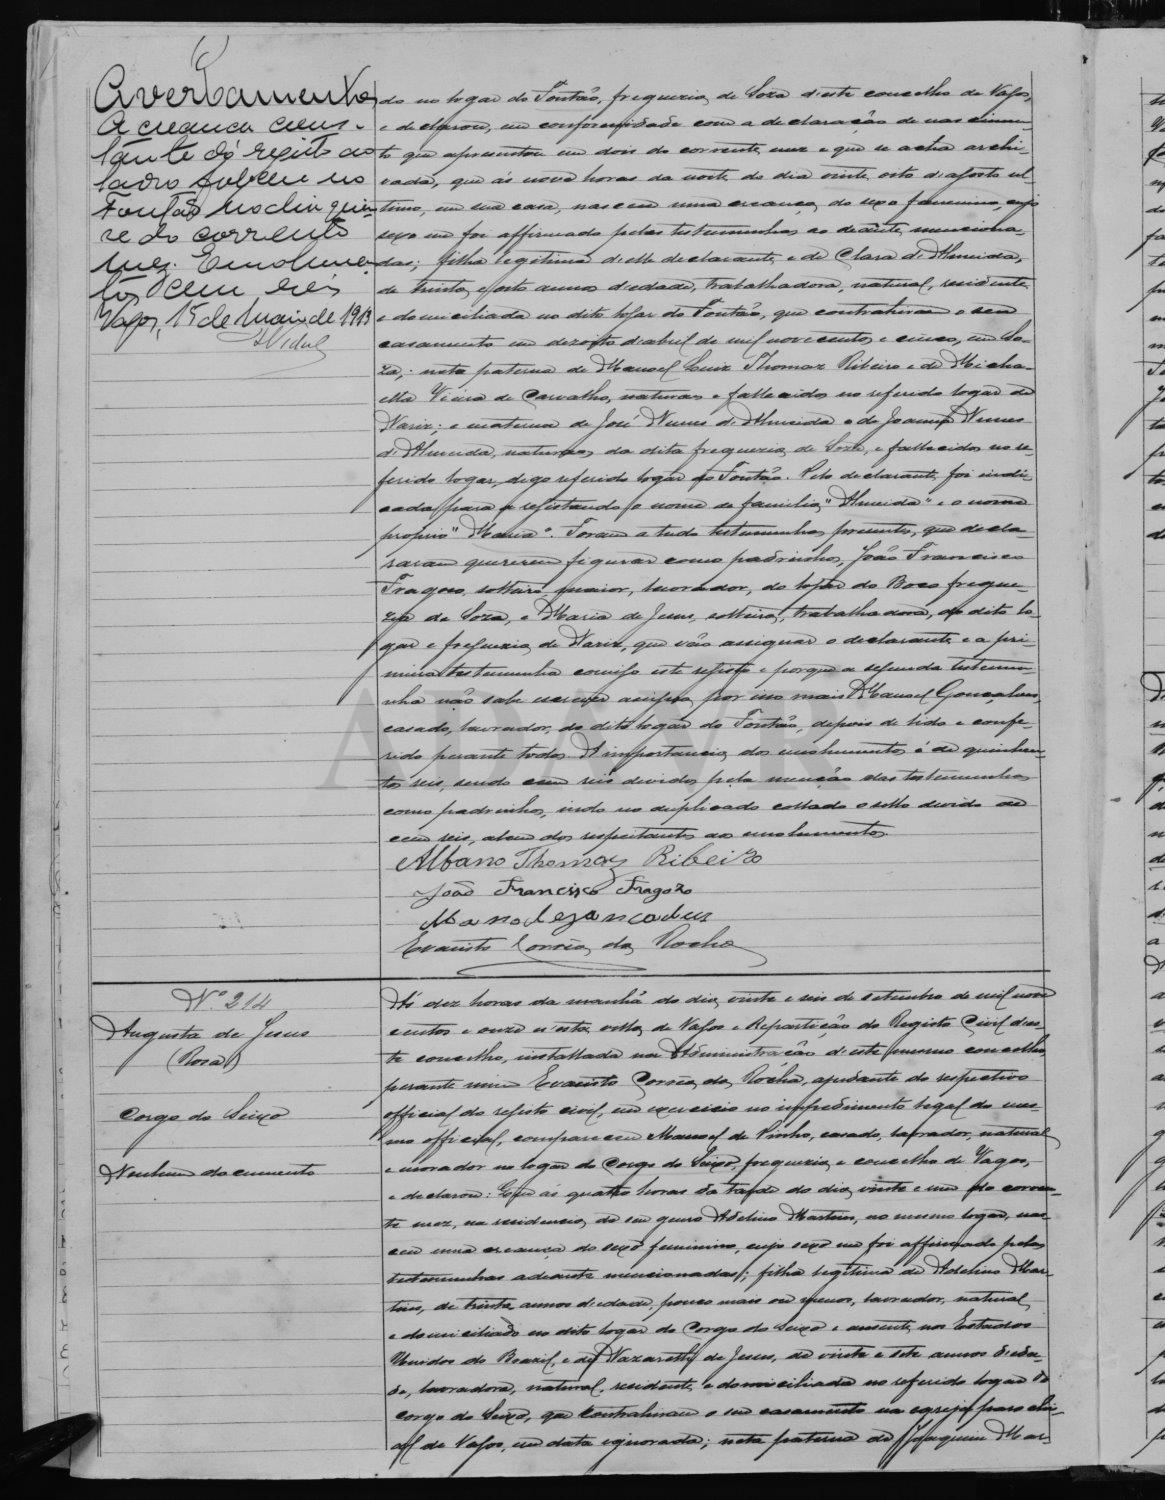 Averbamento
A creança cons-
tante do registo ao
lado falleceu no
Fontão no dia quin-
ze do corrente
mez. Emolumen-
tos cem réis
Vagos, 15 de Maio de 1913
Vidal
do no logar do Fontão, freguezia de Soza d'este concelho de Vagos,
e declarou, em conformidade com a declaração de nascimen-
to que apresentou em dois do corrente mez e que se acha archi-
vada, que ás nove horas da noite do dia vinte oito d'agosto ul-
timo, em sua casa, nasceu uma creança do sexo feminino, cujo
sexo me foi affirmado pelas testemunhas ao deante menciona-
das; filha legitima d'elle declarante e de Clara d'Almeida,
de trinta e oito annos d'edade, trabalhadora, natural, residente
e domiciliada no dito logar do Fontão, que contrahiram o seu
casamento em dezoito d'abril de mil novecentos e cinco, em So-
za; neta paterna de Manoel Luiz Thomaz Ribeiro e de Micha-
ella Vieira de Carvalho, naturaes e fallecidos no referido logar de
Nariz; e materna de José Nunes d'Almeida e de Joanna Nunes
d'Almeida, naturaes da dita freguezia de Soza, e fallecidos no re-
ferido logar, digo referido logar do Fontão. Pelo declarante foi indi-
cado para a registando o nome de familia "Almeida" e o nome
proprio "Maria". Foram a tudo testemunhas presentes, que decla-
raram quererem figurar como padrinhos, João Francisco
Fragoso, solteiro, maior, lavrador, do logar do Boco fregue-
zia de Soza, e Maria de Jesus, solteira, trabalhadora, do dito lo-
gar e freguezia de Nariz, que vão assignar o declarante e a pri-
meira testemunha comigo este registo e porque a segunda testemu-
nha não sabe escrever assigna por isso mais Manoel Gonçalves,
casado, lavrador, do dito logar do Fontão, depois de lido e confe-
rido perante todos. A importancia dos emolumentos é de quinhen-
tos reis, sendo cem reis devidos pela menção das testemunhas
como padrinhos, indo no duplicado collado o sello devido de
cem reis, alem dos respeitantes aos emolumentos.
Albano Thomaz Ribeiro
João Francisco Fragozo
Evaristo Corrêa da Rocha
Nº 214
Augusta de Jesus
(Rosa)
Corgo do Seixo
Nenhum documento
Ás dez horas da manhã do dia vinte e seis de setembro de mil nove
centos e onze n'esta villa de Vagos e Repartição do Registo Civil d'es-
te concelho, installada na Administração d'este mesmo concelho,
perante mim Evaristo Corrêa da Rocha, ajudante do respectivo
official do registo civil, em exercicio no impedimento legal do mes-
mo official, compareceu Manoel de Pinho, casado, lavrador, natural
e morador no logar do Corgo do Seixo, freguezia e concelho de Vagos,
e declarou: Que ás quatro horas da tarde do dia vinte e um do corren-
te mez, na residencia do seu genro Adelino Martins, no mesmo logar, nas-
ceu uma creança do sexo feminino, cujo sexo me foi affirmado pelas
testemunhas adiante mencionadas; filha legitima de Adelino Mar-
tins, de trinta annos d'edade, pouco mais ou menos, lavrador, natural
e domiciliado no dito logar do Corgo do Seixo e ausente nos Estados
Unidos do Brazil, e de Nazareth de Jesus, de vinte e sete annos d'eda-
de, lavradora, natural, residente e domiciliada no referido logar do
Corgo do Seixo, que contrahiram o seu casamento na egreja parochi-
al de Vagos, em data ignorada; neta paterna de Joaquim Mar-